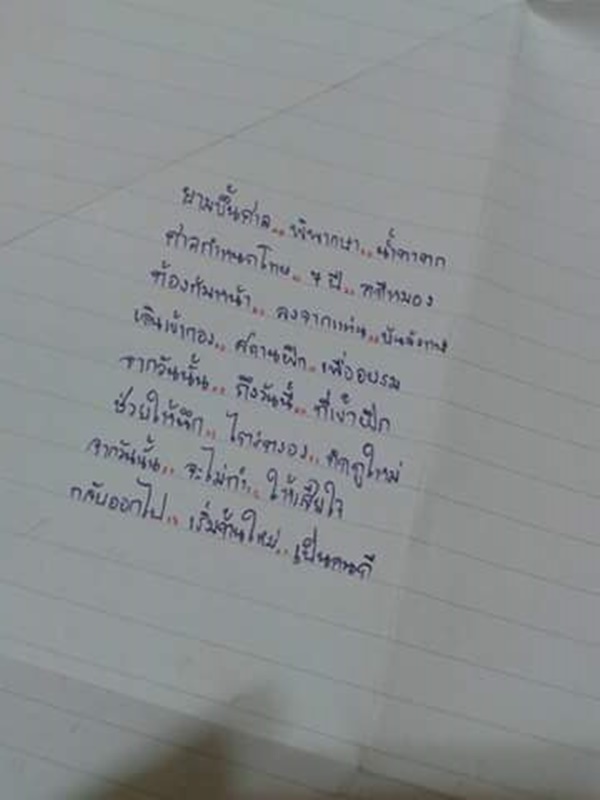 ยามขึ้นศาล.. พิพากษา.. น้ำตาตก
ศาลกำหนดโทษ.. 4 ปี.. คดีหมอง
ต้องก้มหน้า.. ลงจากแท่น.. บัลลังก์
เดินเข้ากอง.. สถานฝึก.. เพื่ออบรม
จากวันนั้น.. ถึงวันนี้.. ที่เข้าฝึก
ช่วยให้นึก.. ไตร่ตรอง.. คิดดูใหม่
จากวันนั้น.. จะไม่ทำ.. ให้เสียใจ
กลับออกไป.. เริ่มต้นใหม่.. เป็นคนดี